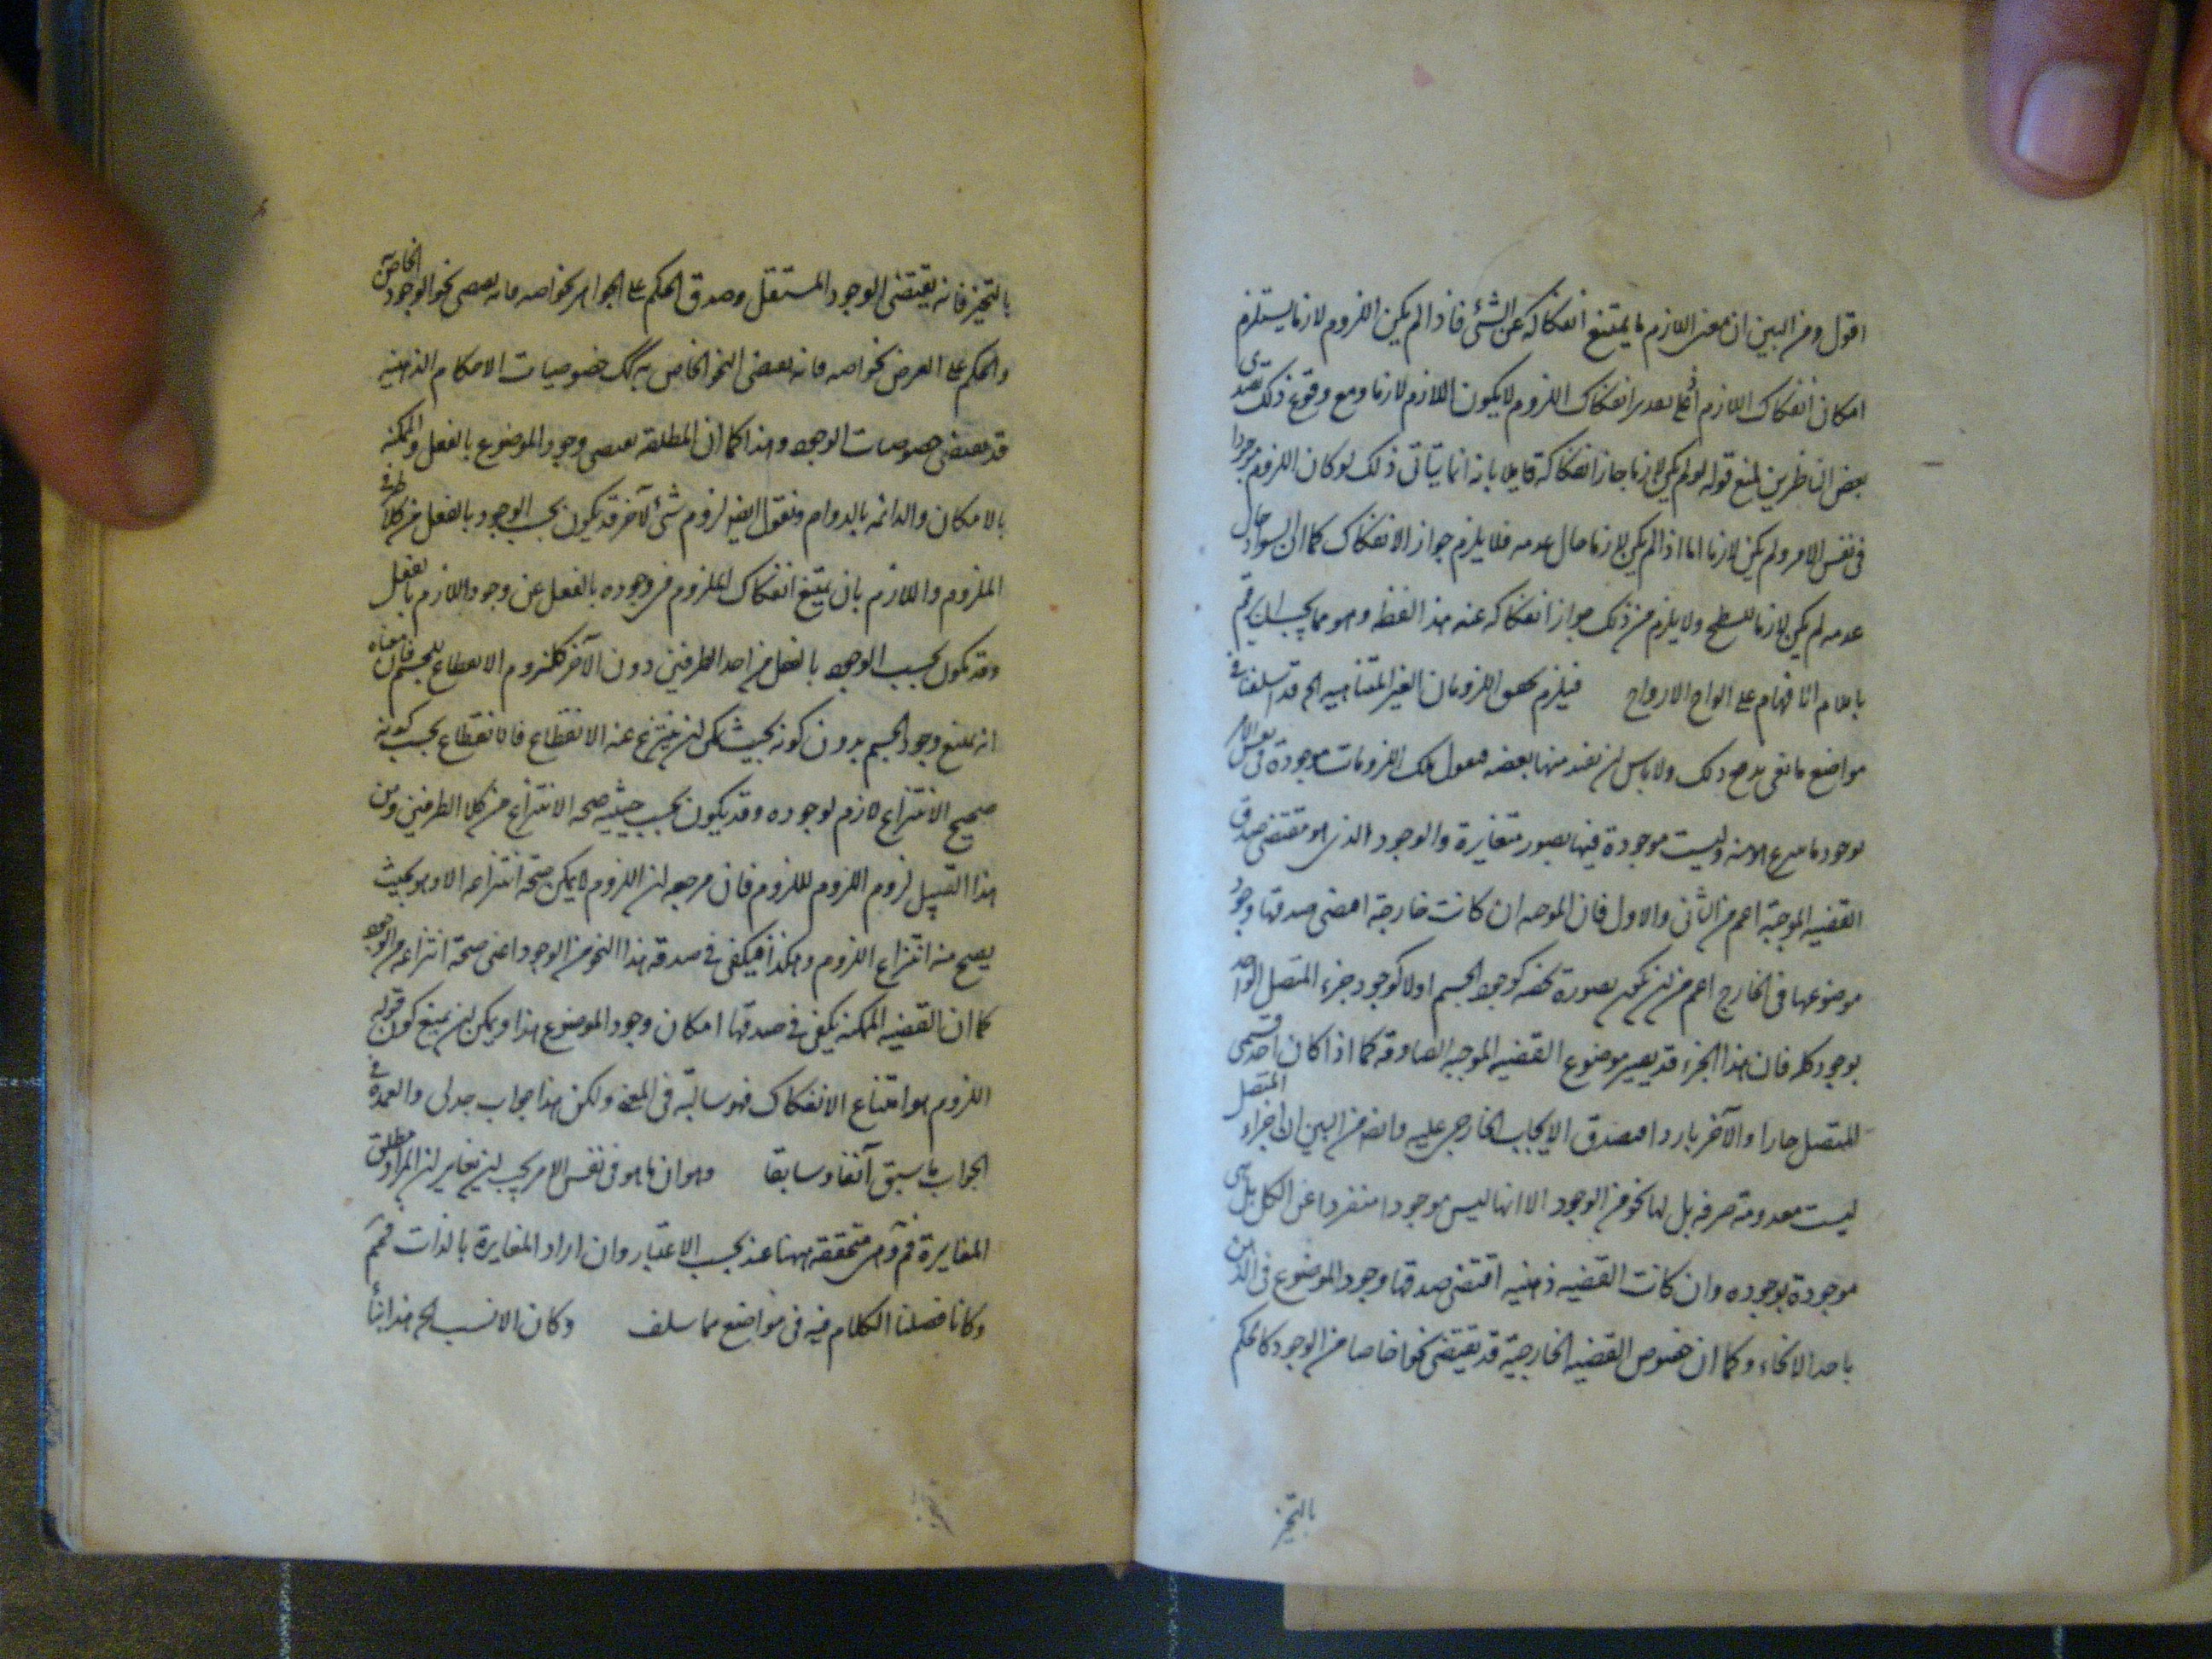 اقول ومن البين ان معنى اللازم ما يمتنع انفكاكه عن الشئ فاذا لم يكن اللزوم لازما يستلزم
امكان انفكاك اللازم اذ على تقدير انفكاك اللزوم لا يكون اللازم لازما ومع وقوع ذلك تصدى
بعض الناظرين لمنع قوله لو لم يكن لازما جاز انفكاكه قايلا بانه انما يتاتى ذلك لو كان اللزوم موجودا
فى نفس الامر ولم يكن لازما اما اذا لم يكن لازما حال عدمه فلا يلزم جواز الانفكاك كما ان السواد حال
عدمه لم يكن لازما للسطح ولا يلزم من ذلك جواز انفكاكه عنه هذا لفظه وهو مما يجب ان يرقم
باقلام الافهام على الواح الارواح فيلزم تحقق اللزومات الغير المتناهيه الخ قد اسلفنا فى
مواضع ما يفى بدفع ذلك ولا باس ان نعيد منها بعضه فنقول تلك اللزومات موجودة فى نفس الامر
بوجود ما ينتزع هى منه وليست موجودة فيها بصور متغايرة والوجود الذى هو مقتضى صدق
القضيه الموجبة اعم من الثانى والاول فان الموجبه ان كانت خارجة اقتضى صدقها وجود
موضوعها فى الخارج اعم من ان يكون بصورة تخصه كوجود الجسم اولا كوجود جزء المتصل الواحد
بوجود كله فان هذا الجزء قد يصير موضوع القضيه الموجبه الصادقه كما اذا كان احد قسمى
المتصل حارا والآخر باردا فيصدق الايجاب الخارجى عليه وايضا من البين ان اجزاء المتصل
ليست معدومة صرفه بل لها نحو من الوجود الا انها ليس موجودا منفردا عن الكل بل هى
موجودة بوجوده وان كانت القضيه ذهنيه اقتضى صدقها وجود الموضوع فى الذهن
باحد الانحاء وكما ان خصوص القضيه الخارجية قد يقتضى نحوا خاصا من الوجود كالحكم
بالتحيز
بالتحيز فانه يقتضى الوجود المستقل وصدق الحكم على الجواهر بخواصه فانه يقتضى نحو الوجود الخاص
والحكم على العرض بخواصه فانه يقتضى النحو الخاص به كك خصوصيات الاحكام الذهنيه
قد يقتضى خصوصيات الوجود وهذا كما ان المطلقه يقتضى وجود الموضوع بالفعل والممكنه
بالامكان والدائمه بالدوام ونقول ايضا لزوم شئ لآخر قد يكون بحسب الوجود بالفعل من كلا طرفى
الملزوم واللازم بان يمتنع انفكاك الملزوم فى وجوده بالفعل عن وجود اللازم بالفعل
وقد يكون بحسب الوجود بالفعل من احد الطرفين دون الآخر كلزوم الانقطاع للجسم فان معناه
انه يمتنع وجود الجسم بدون كونه بحيث يمكن ان ينتزع عنه الانقطاع فالانقطاع بحسب كونه
صحيح الانتزاع لازم لوجوده وقد يكون بحسب حيثيه صحه الانتزاع من كلا الطرفين ومن
هذا القبيل لزوم اللزوم للملزوم فان مرجعه ان اللزوم لا يمكن صحة انتزاعه الا وهو بحيث
يصح منه انتزاع اللزوم وهكذا فيكفى فى صدقه هذا النحو من الوجود اعنى صحة انتزاعه من الوجود
كما ان القضيه الممكنه يكفى فى صدقها امكان وجود الموضوع هذا ويمكن ان يمنع كون قوله
اللزوم هو امتناع الانفكاك فهو سالبه فى المعنى ولكن هذا جواب جدلى والعمده فى
الجواب ما سبق آنفا وسابقا وهو ان ما هو فى نفس الامر يجب ان يغاير ان المراد مطلق
المغايرة فم وهى متحققه ههنا عند بحسب الاعتبار وان اراد المغايرة بالذات فمم
وكانا فصلنا الكلام فيه فى مواضع مما سلف وكان الانسب الخ هذا انما